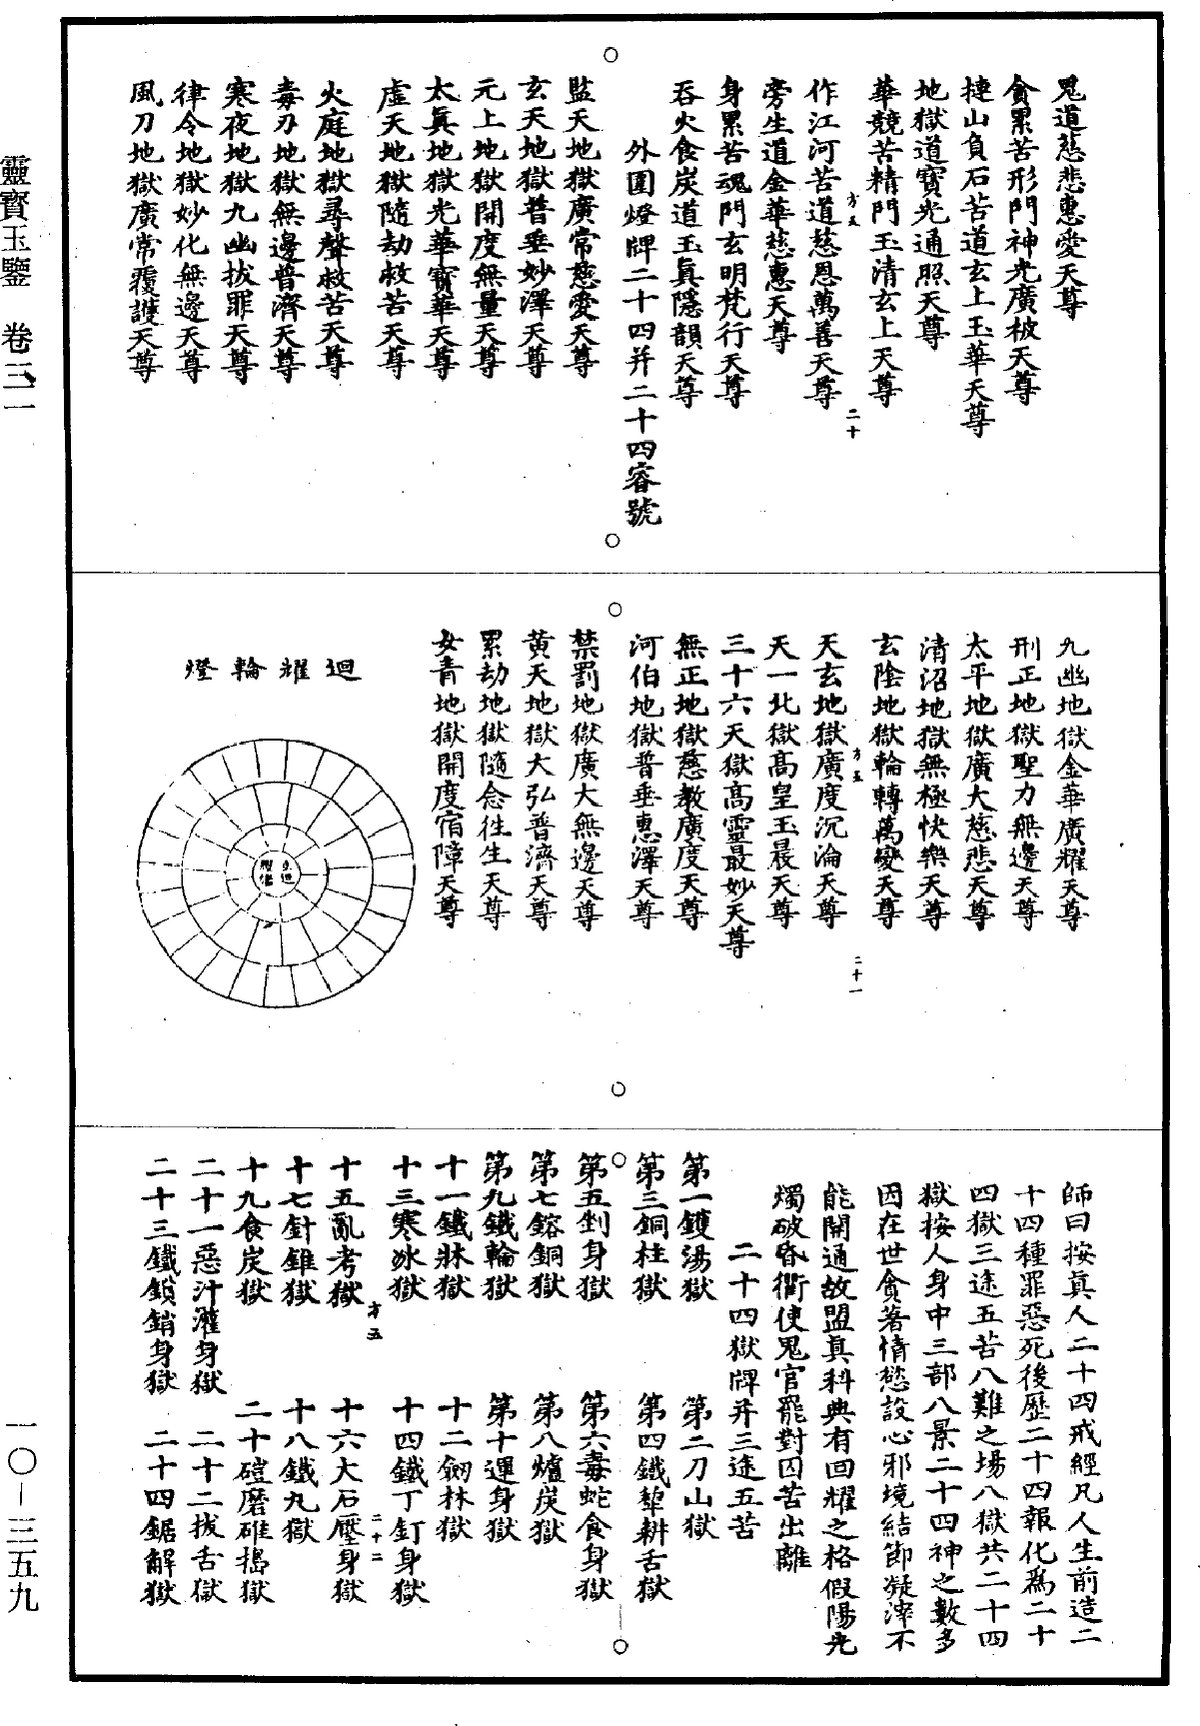 鬼道慈悲惠愛天尊
貪累苦形門神光廣被天尊
揵山負石苦道玄上玉華天尊
地獄道寶光通照天尊
華競苦精門玉清玄上天尊
方五
二十
作江河苦道慈恩萬善天尊
旁生道金華慈惠天尊
身累苦魂門玄明梵行天尊
吞火食炭道玉真隱韻天尊
外圍燈牌二十四并二十四容號
監天地獄廣常慈愛天尊
玄天地獄普垂妙澤天尊
元上地獄開度無量天尊
太真地獄光華寶華天尊
虛天地獄隨劫救苦天尊
火庭地獄尋聲救苦天尊
毒刃地獄無邊普濟天尊
寒夜地獄九幽拔罪天尊
律令地獄妙化無邊天尊
風刀地獄廣常覆護天尊
九幽地獄金華廣耀天尊
刑正地獄聖力無邊天尊
太平地獄廣大慈悲天尊
清沼地獄無極快樂天尊
玄陰地獄輪轉萬變天尊
方五
二十一
天玄地獄廣度沉淪天尊
天一北獄高皇玉晨天尊
三十六天獄高靈最妙天尊
無正地獄慈教廣度天尊
河伯地獄普垂惠澤天尊
禁罰地獄廣大無邊天尊
黃天地獄大弘普濟天尊
累劫地獄隨念往生天尊
女青地獄開度宿障天尊
迴耀輪燈
師曰按真人二十四戒經凡人生前造二
十四種罪惡死後歷二十四報化為二十
四獄三途五苦八難之場八獄共二十四
獄按人身中三部八景二十四神之數多
因在世貪著情慾設心邪境結節凝滓不
能開通故盟真科典有回耀之格假陽光
燭破昏衢使鬼官罷對囚苦出離
二十四獄牌并三途五苦
第一鑊湯獄 第二刀山獄
第三銅柱獄 第四鐵犂耕舌獄
第五剉身獄 第六毒蛇食身獄
第七鎔銅獄 第八爐炭獄
第九鐵輪獄 第十運身獄
十一鐵牀獄 十二劒林獄
十三寒冰獄 十四鐵丁釘身獄
方五
二十二
十五亂考獄 十六大石壓身獄
十七針錐獄 十八鐵丸獄
十九食炭獄 二十磑磨碓搗獄
二十一惡汁灌身獄 二十二拔舌獄
二十三鐵鎖銷身獄 二十四鋸解獄
靈寶玉鑒 卷三一
一〇-三五九